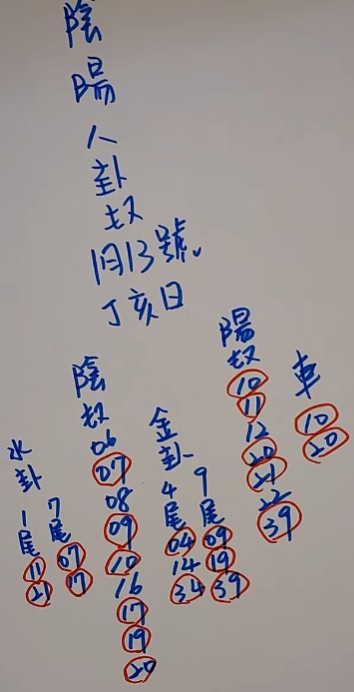 陰陽八卦
1月13號、
丁亥日
車 10 20
陽 10 11 12 20 21 22 39
金卦
9尾 09 19 39
4尾 04 14 34
陰 06 07 08 09 10 16 17 19 20
水卦
7尾 07 17
1尾 11 21